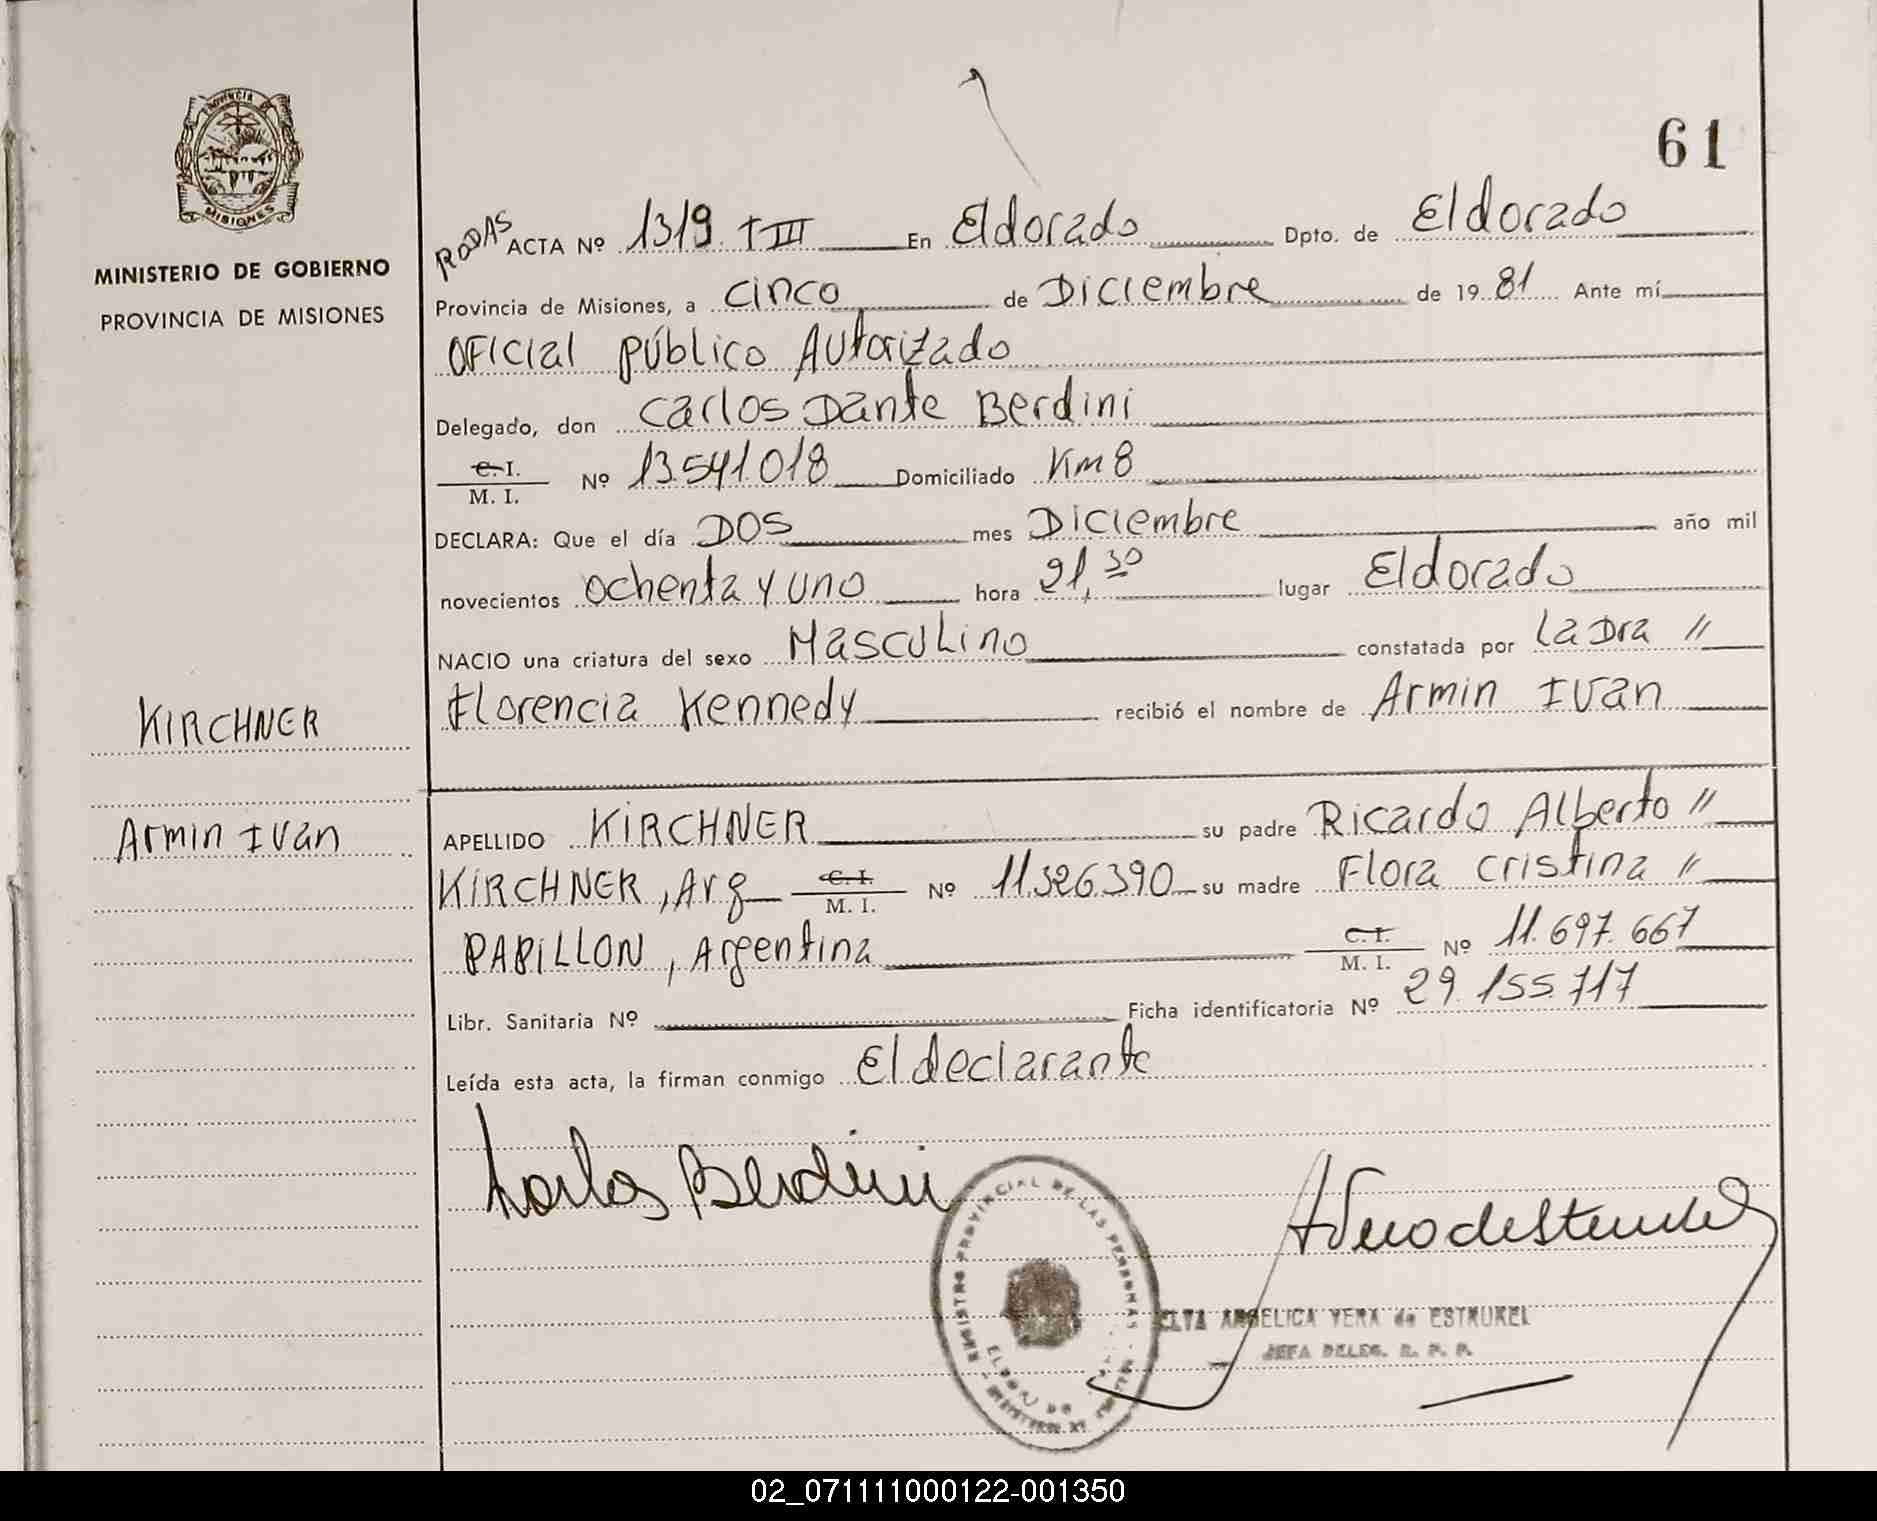 PROVINCIA
MISIONES
MINISTERIO DE GOBIERNO
PROVINCIA DE MISIONES
KIRCHNER
Armin Ivan
61
RODAS ACTA Nº 1319 T III En Eldorado Dpto. de Eldorado
Provincia de Misiones, a cinco de Diciembre de 19 81 Ante mí
Oficial Público Autorizado
Delegado, don Carlos Dante Berdini
C. I. / M. I. Nº 13.541.018 Domiciliado Km 8
DECLARA: Que el día DOS mes Diciembre año mil
novecientos ochenta y uno hora 21,30 lugar Eldorado
NACIO una criatura del sexo Masculino constatada por La Dra //
Florencia Kennedy recibió el nombre de Armin Ivan
APELLIDO KIRCHNER su padre Ricardo Alberto //
KIRCHNER, Arg C. I. / M. I. Nº 11.326.390 su madre Flora Cristina //
PAPILLON, Argentina C. I. / M. I. Nº 11.697.667
Libr. Sanitaria Nº Ficha identificatoria Nº 29.155.717
Leída esta acta, la firman conmigo El declarante
Carlos Berdini
REGISTRO PROVINCIAL DE LAS PERSONAS
ELDORADO
ANGELICA VERA de ESTRUKEL
JEFA DELEG. R. P. P.
02_071111000122-001350